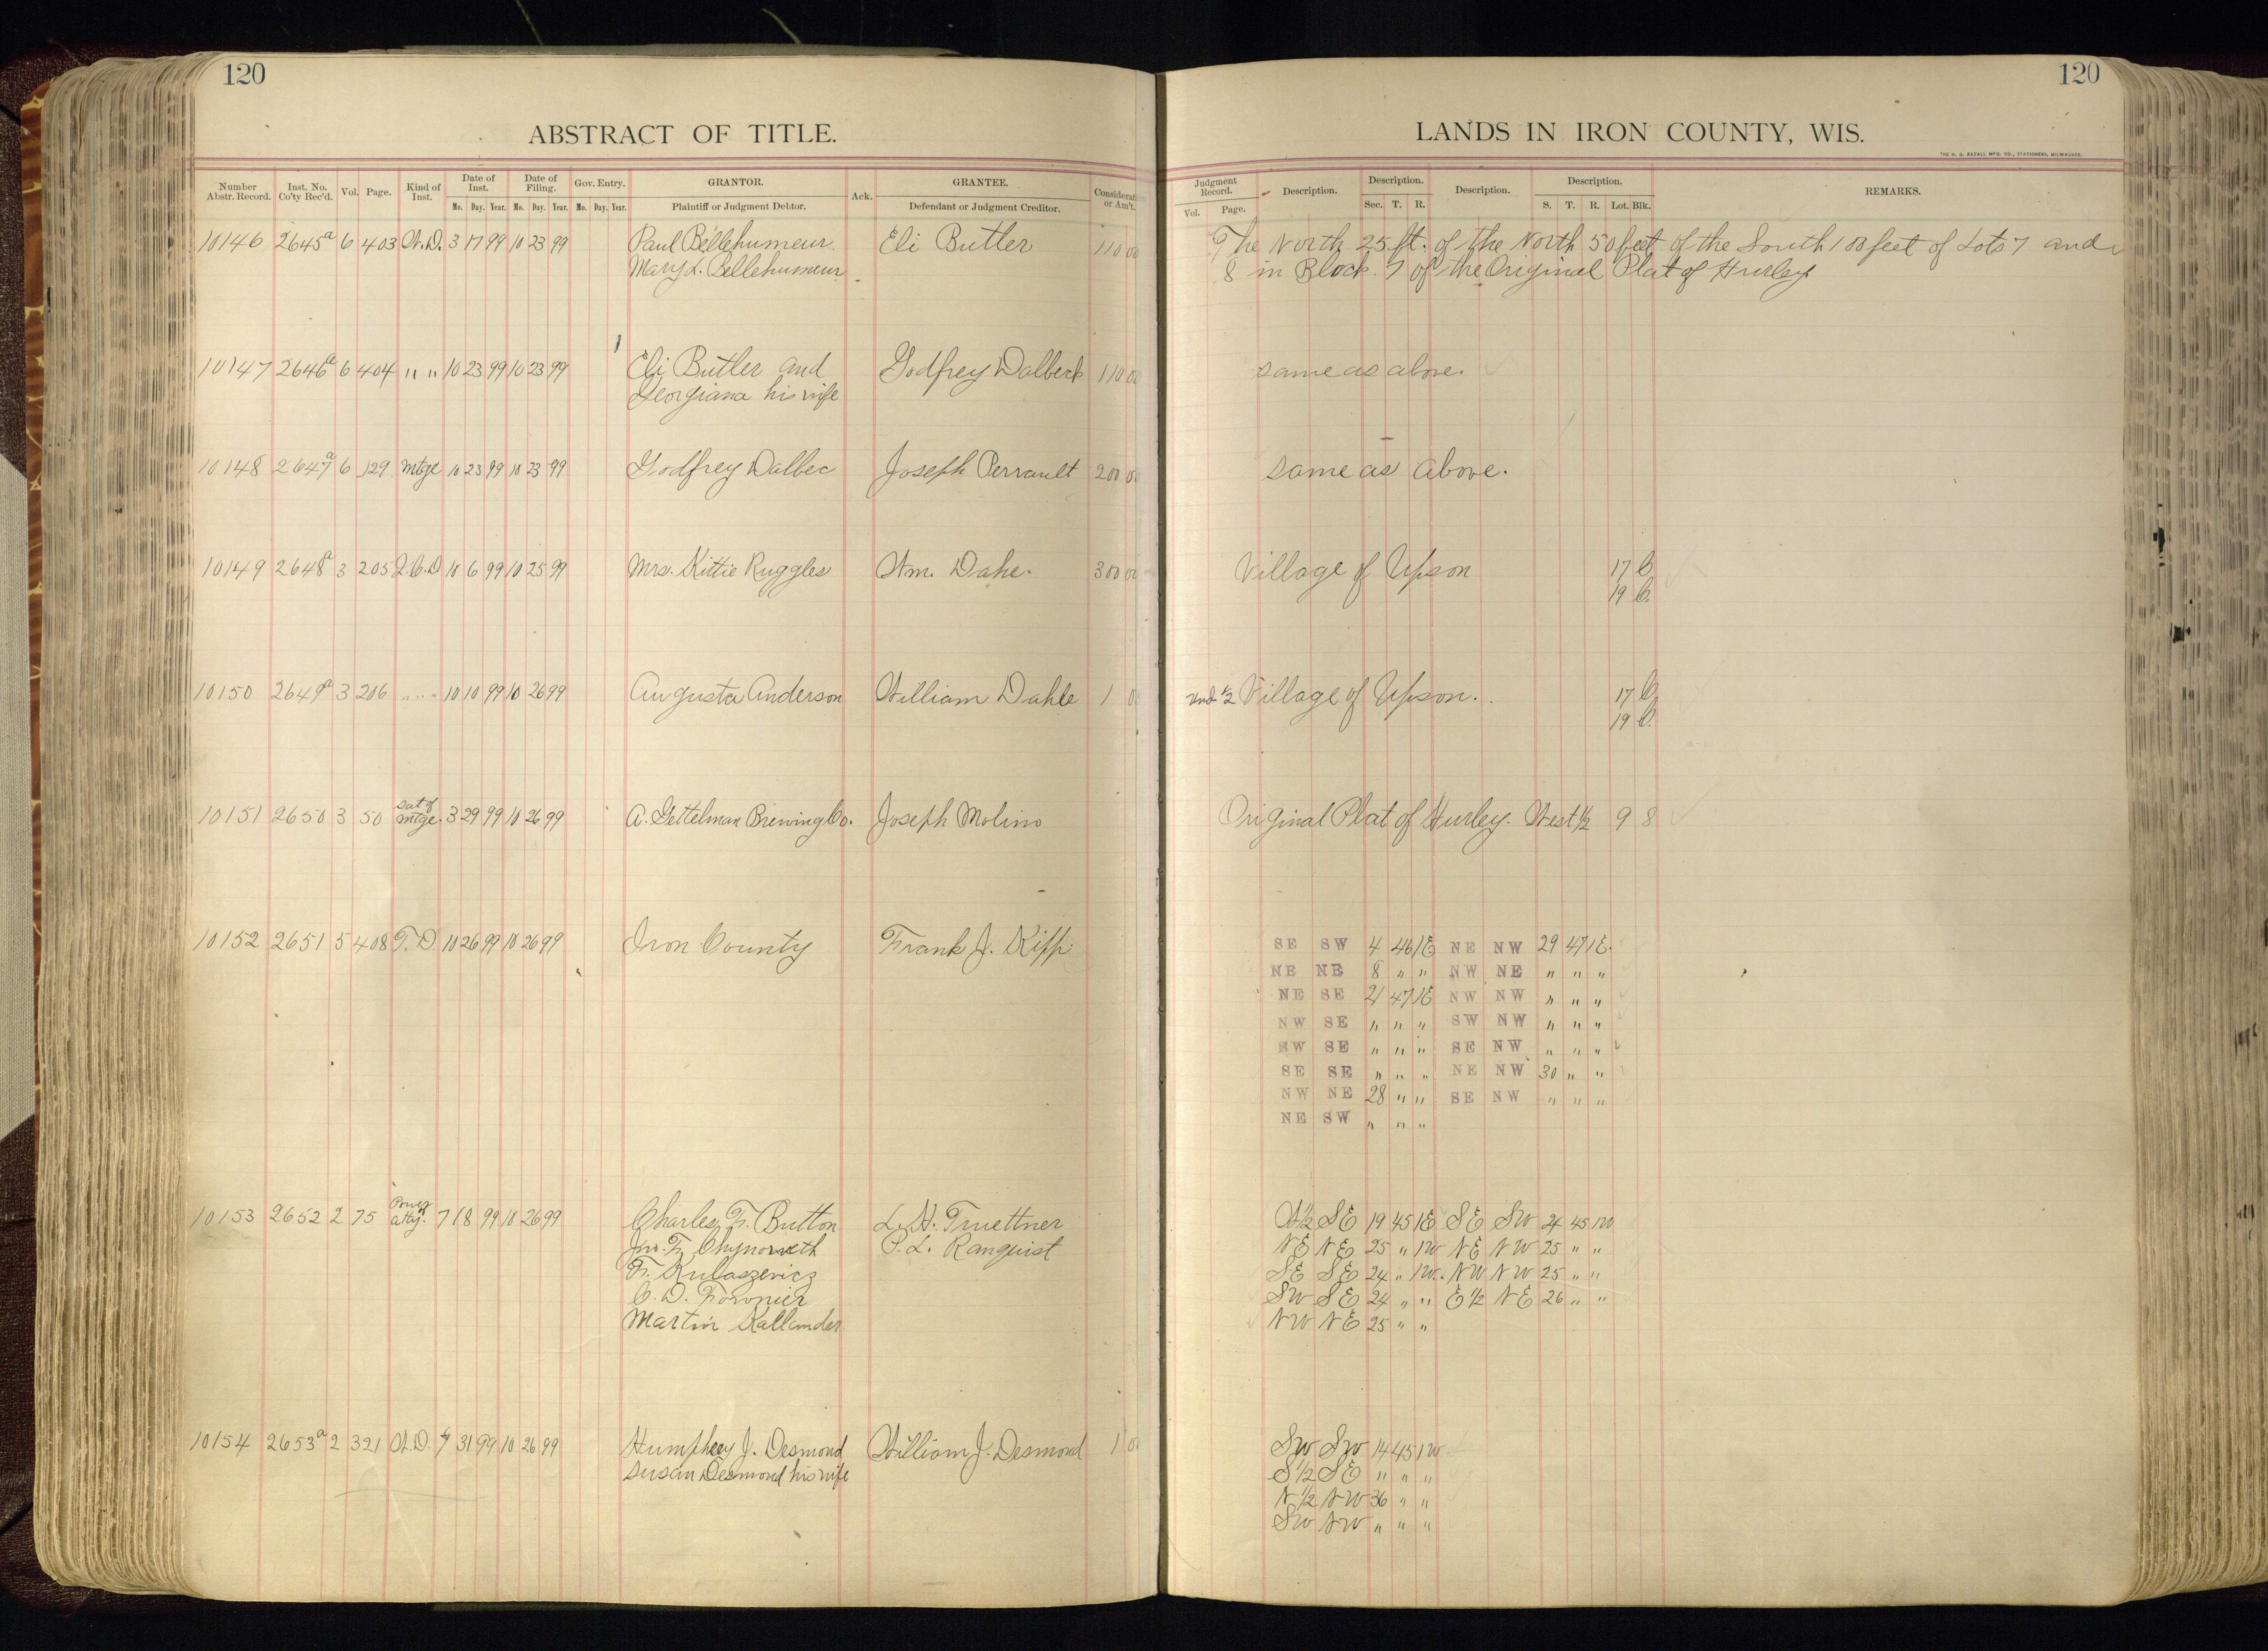 120
ABSTRACT OF TITLE.
Number Abstr. Record. Inst. No. Co'ty Rec'd. Vol. Page. Kind of Inst. Date of Inst. Mo. Day. Year. Date of Filing. Mo. Day. Year. Gov. Entry. Mo. Day. Year. GRANTOR. Plaintiff or Judgment Debtor. Ack. GRANTEE. Defendant or Judgment Creditor. Considerat or Am't.
10146 2645a 6 403 W.D. 3 17 99 10 23 99 Paul Bellehumeur Eli Butler 110 00
Mary L. Bellehumeur
10147 2646a 6 404 " " 10 23 99 10 23 99 Eli Butler and Godfrey Dalbeck 110 00
Georgiana his wife
10148 2647a 6 129 mtge 10 23 99 10 23 99 Godfrey Dalbec Joseph Perrault 200 00
10149 2648a 3 205 Q.C.D 10 6 99 10 25 99 Mrs. Kittie Ruggles Wm. Dahe. 300 00
10150 2649a 3 206 " " " 10 10 99 10 26 99 Augusta Anderson William Dahle 1 00
10151 2650 3 50 sat of mtge. 3 29 99 10 26 99 A. Gettelman Brewing Co. Joseph Molino
10152 2651 5 408 T.D. 10 26 99 10 26 99 Iron County Frank J. Kipp
10153 2652 2 75 Power atty. 7 18 99 10 26 99 Charles F. Button L. H. Truettner
Jno. F. Chynoweth P. L. Ranquist
F. Kulaszevicz
C. D. Fownier
Martin Kallander
10154 2653a 2 321 W.D. 7 31 99 10 26 99 Humphrey J. Desmond William J. Desmond 1 00
Susan Desmond his wife
120
LANDS IN IRON COUNTY, WIS.
THE H. G. RAZALL MFG. CO., STATIONERS, MILWAUKEE.
Judgment Record. Vol. Page. Description. Description. Sec. T. R. Description. Description. S. T. R. Lot. Blk. REMARKS.
The North 25 ft. of the North 50 feet of the South 100 feet of Lots 7 and
8 in Block 7 of the Original Plat of Hurley
same as above.
same as above.
Village of Upson 17 C
19 C.
Und 1/2 Village of Upson. 17 C
19 C.
Original Plat of Hurley. West 1/2 9 8
SE SW 4 46 1E NE NW 29 47 1E.
NE NE 8 " " NW NE " " "
NE SE 21 47 1E NW NW " " "
NW SE " " " SW NW " " "
SW SE " " " SE NW " " "
SE SE " " " NE NW 30 " "
NW NE 28 " " SE NW " " "
NE SW " " "
W 1/2 SE 19 45 1E SE SW 24 45 1W
NE NE 25 " 1W NE NW 25 " "
SE SE 24 " 1W. NW NW 25 " "
SW SE 24 " " E 1/2 NE 26 " "
NW NE 25 " "
SW SW 14 45 1W
S 1/2 SE " " "
N 1/2 NW 36 " "
SW NW " " "